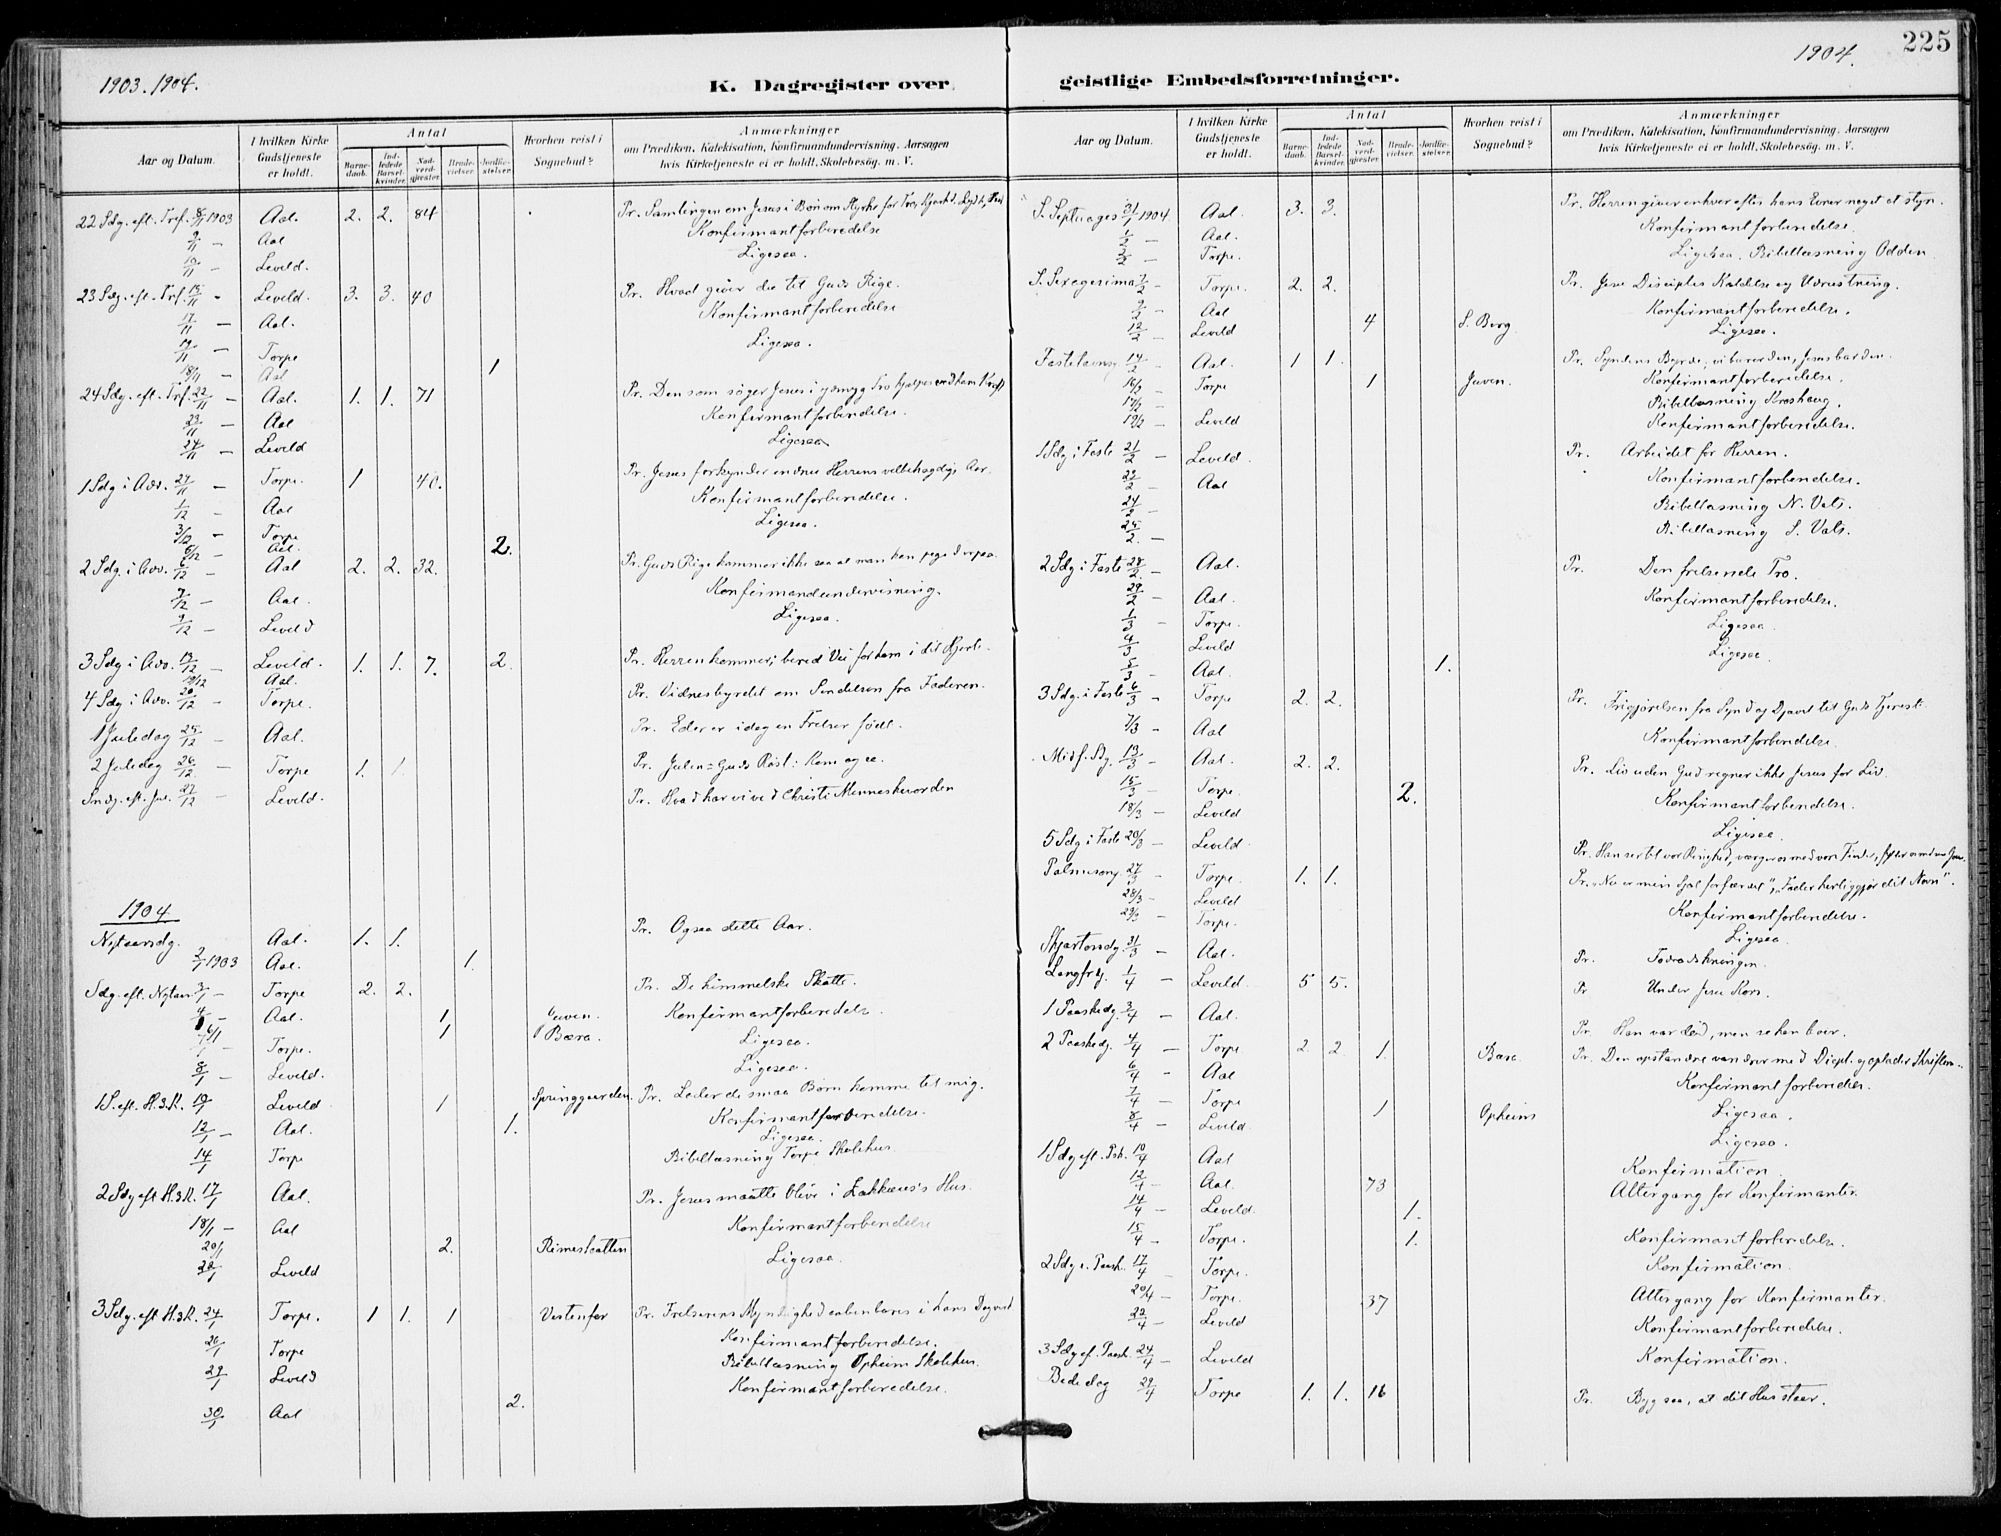 225
1903. 1904.
1904.
K. Dagregister over
geistlige Embedsforretninger.
Aar og Datum.
I hvilken Kirke Gudstjeneste er holdt.
Antal
Barnedaab.
Indledede Barselkvinder.
Nadverdgjæster.
Brudevielser.
Jordfæstelser.
Hvorhen reist i Sognebud?
Anmærkninger
om Prædiken, Katekisation, Konfirmandundervisning, Aarsagen
hvis Kirketjeneste ei er holdt, Skolebesøg, m. V.
22 Sdg. eft. Tref. 8/11 1903 Aal. 2. 2. 84 Pr. Samlingen om Jesus i Bøn om Styrke for Tro,
9/11 — Aal Konfirmantforberedelse
10/11 — Leveld. Ligesaa.
23 Sdg. eft. Trf. 15/11 - Leveld. 3. 3. 40 Pr. Hvad giver du til Guds Rige.
17/11 — Aal. Konfirmantforberedelse
19/11 — Torpe Ligesaa.
18/11 — Aal 1
24 Sdg. eft. Trf. 22/11 — Aal. 1. 1. 71 Pr. Den som søger Jesus i ydmyg Tro hjælpes
23/11 — Aal Konfirmantforberedelse.
24/11 — Leveld Ligesaa
1 Sdg i Adv. 29/11 — Torpe. 1 40. Pr. Jesus forkynder endnu Herrens velbehagelige Aar.
1/12 - Aal Konfirmantforberedelse.
3/12 - Torpe Ligesaa.
5/12 — Aal. 2.
2 Sdg. i Adv. 6/12 — Aal 2. 2. 32. Pr. Guds Rige kommer ikke saa at man kan pege derpaa.
7/12 — Aal. Konfirmandundervisning.
9/12 — Leveld Ligesaa.
3 Sdg i Adv. 13/12 — Leveld. 1. 1. 7. 2. Pr. Herren kommer; bered Vei for ham i dit Hjerte.
19/12 Aal.
4 Sdg i Adv. 20/12 - Torpe. Pr. Vidnesbyrdet om Sendelsen fra Faderen.
1 Juledag 25/12 — Aal. Pr. Eder er idag en Frelser født.
2 Juledag 26/12 — Torpe 1. 1. Pr. Julen = Guds Røst: Kom og se.
Sndg. eft. Jul. 27/12 — Leveld. Pr. Hvad har vi ved Christi Menneskevorden
1904
Nytaarsdg. Aal. 1. 1. Pr. Ogsaa dette Aar.
2/1 1903 Aal. 1.
Sdg. eft. Nytaar 3/1 — Torpe 2. 2. Pr. De himmelske Skatte.
4/1 — Aal. 1 Juven. Konfirmantforberedelse.
6/1 — Torpe. 1 Bæra. Ligesaa.
8/1 — Leveld. Ligesaa.
1 S. eft. H.3.K. 10/1 Leveld 1 Springgaarden Pr. Lader de smaa Børn komme til mig.
12/1 — Aal. 1. Konfirmantforberedelse.
Ligesaa.
14/1 Torpe Bibellæsning Torpe Skolehus.
2 Sdg eft H.3.K. 17/1 Aal. Pr. Jesus maatte blive i Zakkæus's Hus.
18/1 — Aal Konfirmantforberedelse
20/1 2. Rimeskatten
Leveld Ligesaa.
3 Sdg. eft H.3.K. 24/1 Torpe. 1 1. 1 Vestenfor Pr. Frelserens Myndighed aabenbares i hans
26/1 Torpe Konfirmantforberedelse.
Bibellæsning Opheim Skolehus.
29/1 Leveld Konfirmantforberedelse.
30/1 Aal 2.
Aar og Datum.
I hvilken Kirke Gudstjeneste er holdt.
Antal
Barnedaab.
Indledede Barselkvinder.
Nadverdgjæster.
Brudevielser.
Jordfæstelser.
Hvorhen reist i Sognebud?
Anmærkninger
om Prædiken, Katekisation, Konfirmandundervisning, Aarsagen
hvis Kirketjeneste ei er holdt, Skolebesøg, m. V.
S. Septuages 31/1 1904 Aal. 3. 3. Pr. Herren giver enhver efter hans Evner noget at styre.
1/2 — Aal. Konfirmantforberedelse.
Torpe. Ligesaa. Bibellæsning Odden
S. Sexagesima 7/2 — Torpe. 2. 2. Pr. Jesu Disciples Kaldelse og Udrustning.
Aal Konfirmantforberedelse.
12/2 — Leveld 4 S. Berg. Ligesaa.
Fastelavnsg 14/2 — Aal. 1 1. Pr. Syndens Byrde; vi bærer den, Jesus bar den.
16/2 — Torpe 1 Juven. Konfirmantforberedelse.
17/2 — Bibellæsning
19/2 — Leveld Konfirmantforberedelse.
1 Sdg i Faste 21/2 — Leveld. Pr. Arbeidet for Herren.
22/2 — Aal Konfirmantforberedelse.
24/2 — Bibellæsning N. Vats.
25/2. — Bibellæsning S. Vats.
2 Sdg i Faste 28/2. — Aal. Pr. Den frelsende Tro.
29/2 — Aal. Konfirmantforberedelse.
1/3 — Torpe. Ligesaa
4/3 Leveld Ligesaa.
5/3 — Aal. 1.
3 Sdg. i Faste 6/3 — Torpe 2. 2. Pr. Frigjørelsen fra Synd og Djævel til Guds Tjeneste.
7/3 - Aal Konfirmantforberedelse.
Midf. Sg. 13/3 — Aal. 2. 2. Pr. Liv uden Gud regner ikke Jesus for Liv.
15/3 — Torpe. 2. Konfirmantforberedelse.
18/3 — Leveld Ligesaa.
5 Sdg i Faste 20/3 — Leveld. Pr. Han ser til vor Ringhed,
Palmesøng. 27/3 — Torpe. 1. 1. Pr. „Nu er min Sjæl forfærdet", „Fader herliggjør dit Navn".
28/3 — Leveld Konfirmantforberedelse.
29/3 — Torpe. Ligesaa
Skjærtorsdg. 31/3 — Aal. Pr. Fodvadskningen.
Langfrdg. 1/4 — Leveld. 5 5. Pr Under Jesu Kors.
1 Paaskedg. 3/4 — Aal. Pr Han var død, men se han lever.
2 Paaskedg. 4/4 — Torpe 2. 2 1. Bæra. Pr. Den opstandne vandrer med Dicpl. og oplader Skriften.
6/4 — Aal Konfirmantforberedelse.
7/4 — Torpe 1 Opheim Ligesaa.
8/4 — Leveld Ligesaa.
1 Sdg eft. Psk. 10/4 Aal Konfirmation.
12/4 — Aal. 73 Altergang for Konfirmanter.
14/4 — Leveld. 1.
15/4 — Torpe. 1. Konfirmantforberedelse.
2 Sdg e. Paask. 17/4 — Torpe. Konfirmation.
20/4 — Torpe. 37 Altergang for Konfirmanter.
22/4 — Leveld Konfirmantforberedelse.
3 Sdg ef. Paask. 24/4 — Leveld Konfirmation.
Bededag 29/4 Torpe 1. 1. 16 Pr. Byg saa, at dit Hus staar.